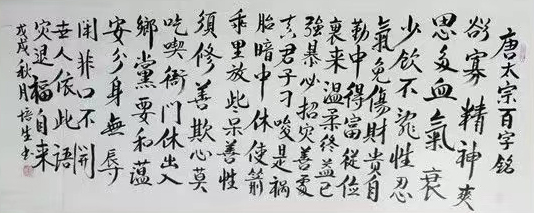 唐太宗百字銘
欲寡精神爽
思多血氣衰
少飲不亂性忍
氣免傷財貴自
勤中得富從位
裏來溫柔終益己
強暴必招灾善處
真君子刁唆是禍
胎暗中休使箭
乖里放些呆善性
須修善欺心莫
吃喫衙門休出入
鄉黨要和蘊
安分身無辱
閑非口不開
世人依此語
灾退福自來
戊戌秋月培生书